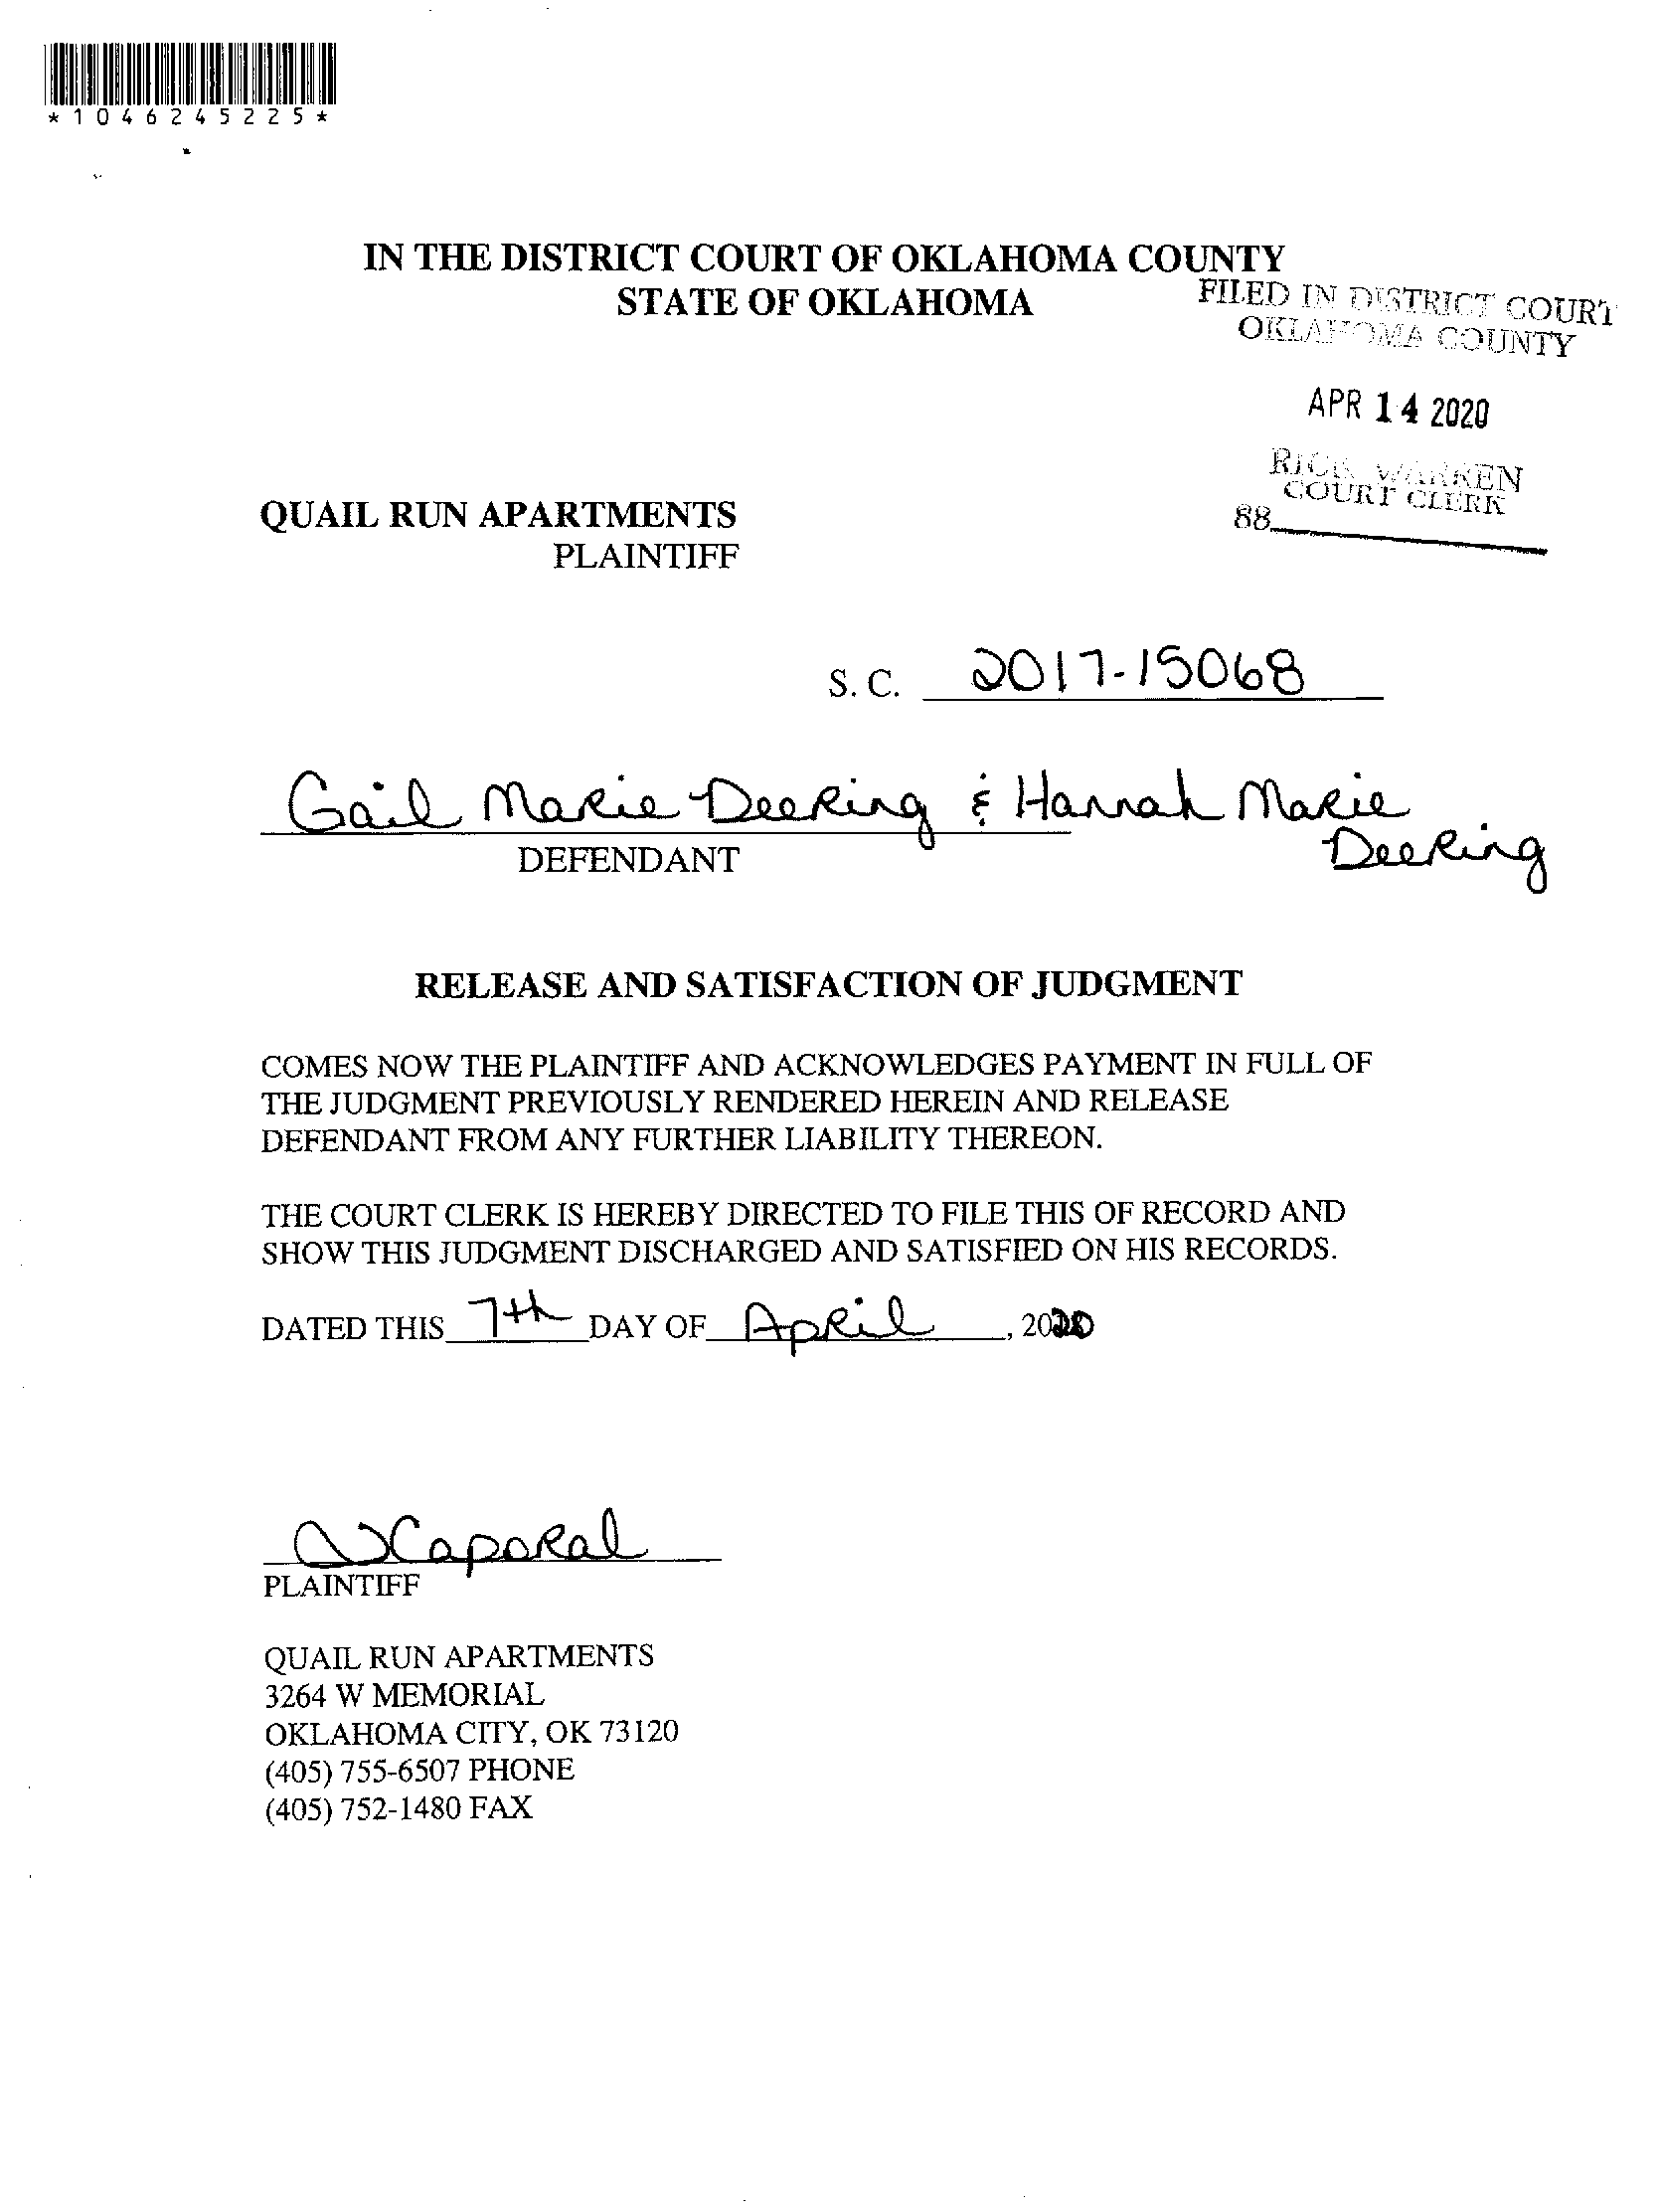 *1046245225*
IN THE DISTRICT COURT OF OKLAHOMA COUNTY
STATE OF OKLAHOMA
FILED IN DISTRICT COURT
OKLAHOMA COUNTY
APR 14 2020
RICK WARREN
COURT CLERK
88
QUAIL RUN APARTMENTS
PLAINTIFF
S. C. 2017-15068
Gail Marie Deering & Hannah Marie
Deering
DEFENDANT
RELEASE AND SATISFACTION OF JUDGMENT
COMES NOW THE PLAINTIFF AND ACKNOWLEDGES PAYMENT IN FULL OF
THE JUDGMENT PREVIOUSLY RENDERED HEREIN AND RELEASE
DEFENDANT FROM ANY FURTHER LIABILITY THEREON.
THE COURT CLERK IS HEREBY DIRECTED TO FILE THIS OF RECORD AND
SHOW THIS JUDGMENT DISCHARGED AND SATISFIED ON HIS RECORDS.
DATED THIS 7th DAY OF April, 2020
Caporal
PLAINTIFF
QUAIL RUN APARTMENTS
3264 W MEMORIAL
OKLAHOMA CITY, OK 73120
(405) 755-6507 PHONE
(405) 752-1480 FAX